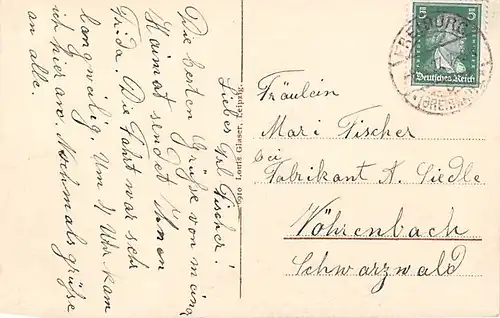 Liebes Frl. Fischer!
Die besten Grüße von meing
Heimat sendet Ihnen
Frida. Die Fahrt war sch
langweilig. Um 4 Uhr kam
ich hier an. Nochmals grüße
an alle.
5 5
Deutsches Reich
FREIBURG
(BREISGAU)
Fräulein
Mari Fischer
bei
Fabrikant A. Siedle
Vöhrenbach
Schwarzwald